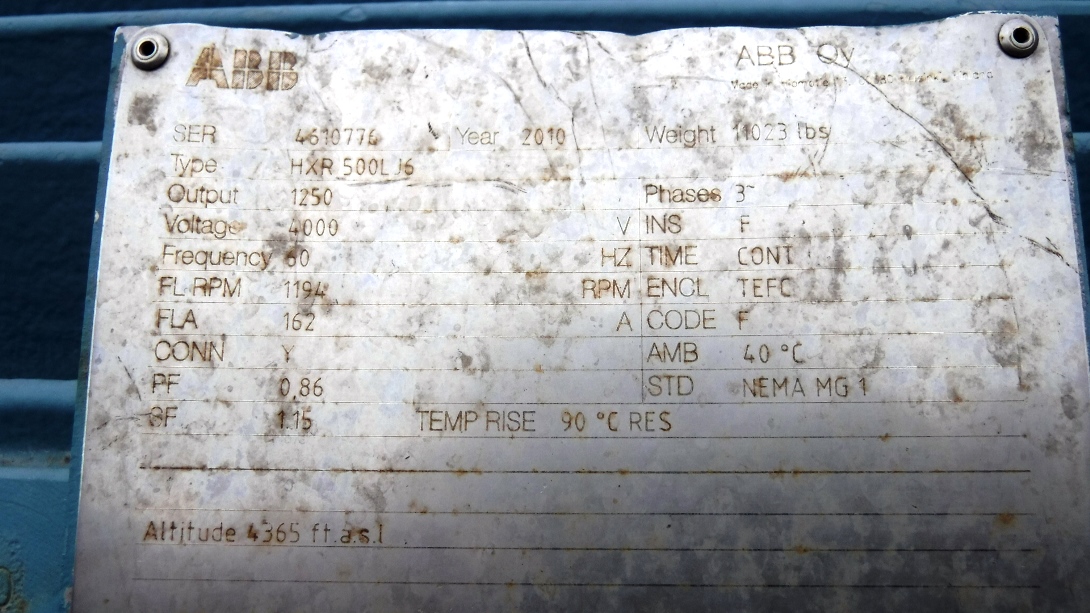 ABB ABB Oy
SER 4610776 Year 2010 Weight 11023 lbs
Type HXR 500LJ6
Output 1250 Phases 3~
Voltage 4000 V INS F
Frequency 60 HZ TIME CONT
FL RPM 1194 RPM ENCL TEFC
FLA 162 A CODE F
CONN Y AMB 40 °C
PF 0,86 STD NEMA MG 1
SF 1.15 TEMP RISE 90 °C RES
Altitude 4365 ft.a.s.l